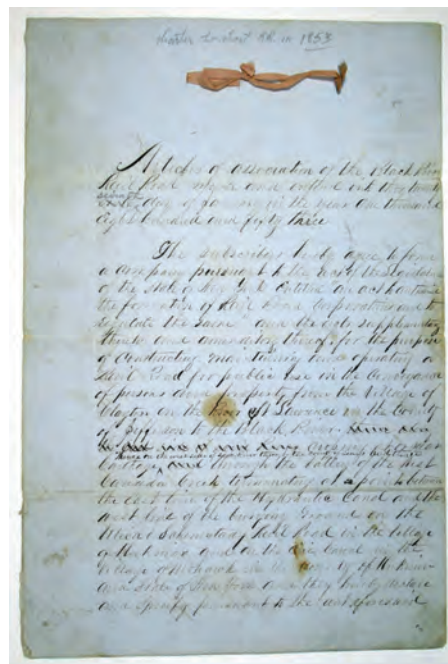 Charter to start RR in 1853
Articles of Association of the Black River
Rail Road made and entered into this twenty
seventh
day of January in the year One thousand
eight hundred and fifty three
The subscribers hereby agree to form
a company pursuant to the Act of the Legislature
of the State of New York Entitled An act to authorize
the formation of Rail Road Corporations and to
regulate the same and the acts supplementary
thereto and amendatory thereof for the purpose
of Constructing maintaining and operating a
Rail Road for public use in the Conveyance
of persons and property from the Village of
Clayton on the River St Lawrence in the County
of Jefferson to the Black River
Carthage and through the valley of the West
Canada Creek to
the east line of the Hydraulic Canal and the
west line of the burying Ground on the
Utica & Schenectady Rail Road in the Village
of Herkimer and on the Erie Canal in the
Village of Mohawk in the County of Herkimer
and State of New York and they hereby
and specify pursuant to the act aforesaid